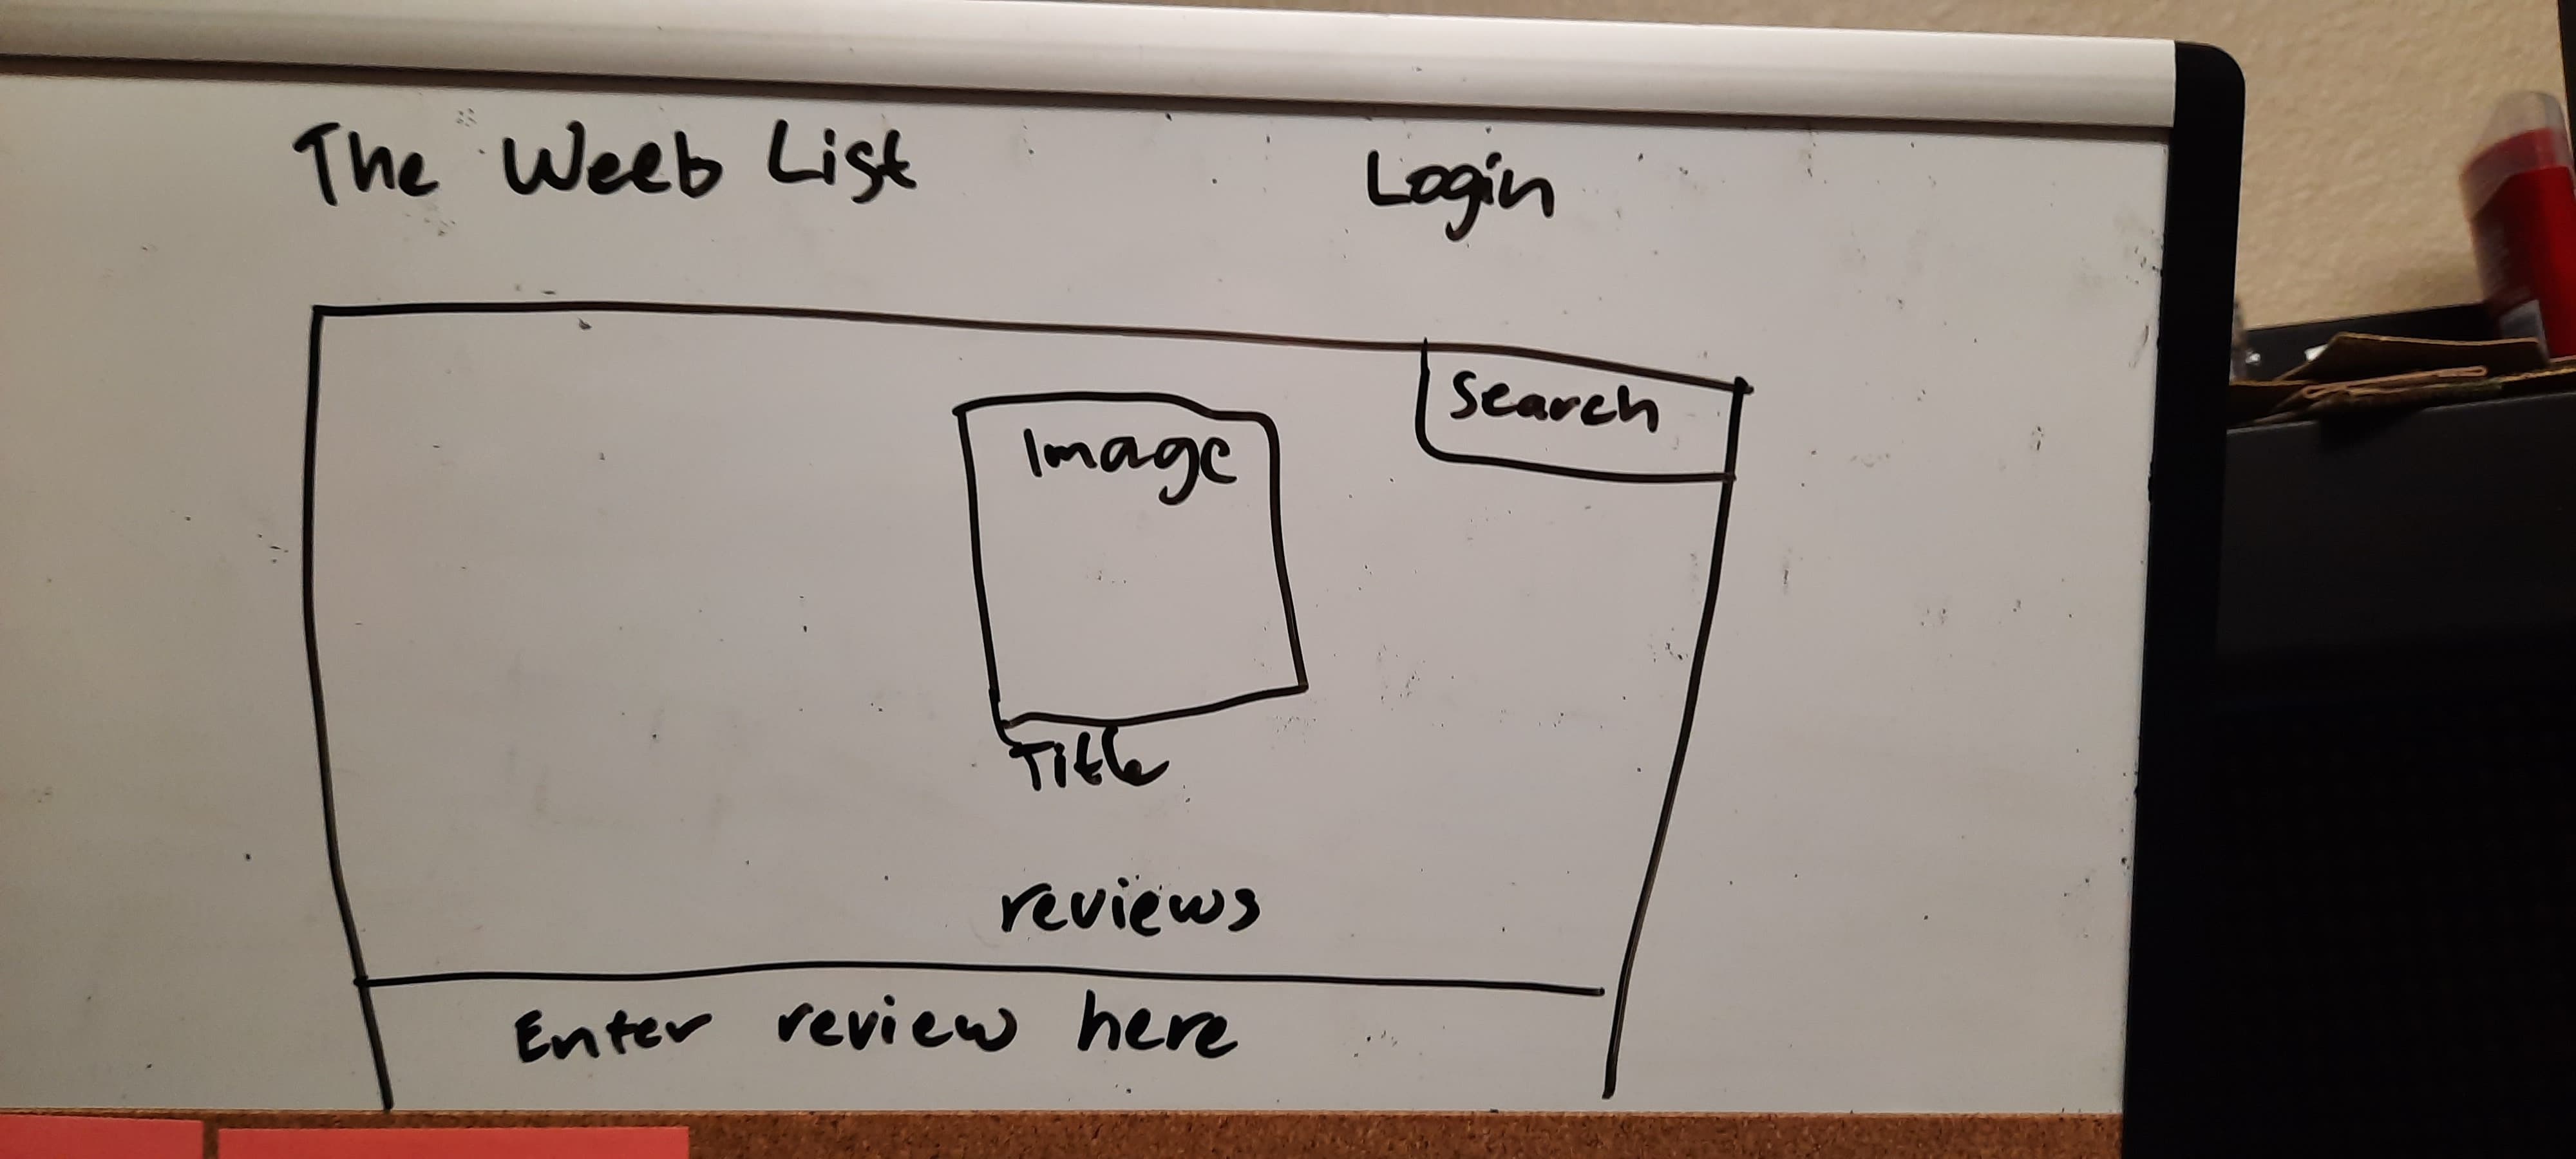 The Weeb List
Login
Search
Image
Title
reviews
Enter review here